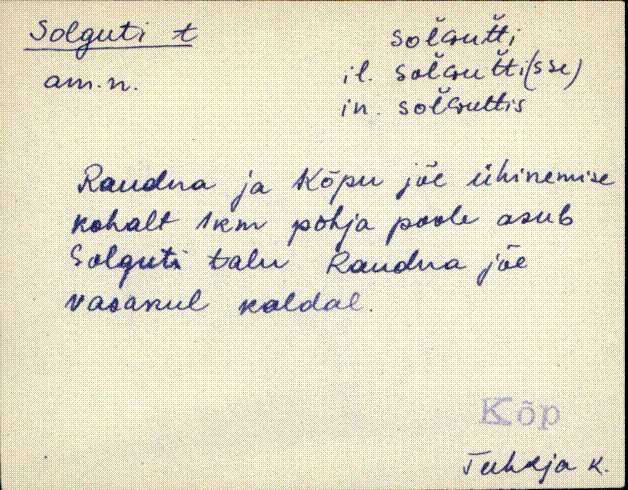 Solguti t
am.n.
soľɢutti
il. soľɢutti(sse)
in. soľɢuttis
Raudna ja Kõpu jõe ühinemise
kohalt 1km põhja poole asub
Solguti talu Raudna jõe
vasakul kaldal.
Kõp
Tuhalja k.